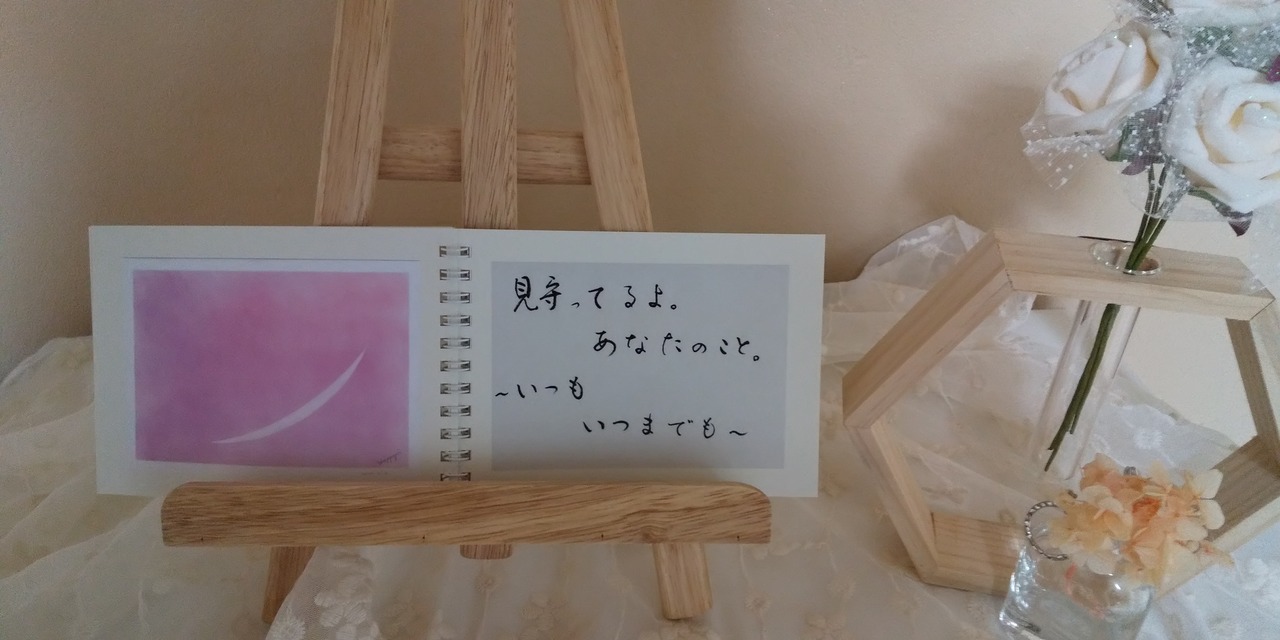 見守ってるよ。
あなたのこと。
~いつも
いつまでも~